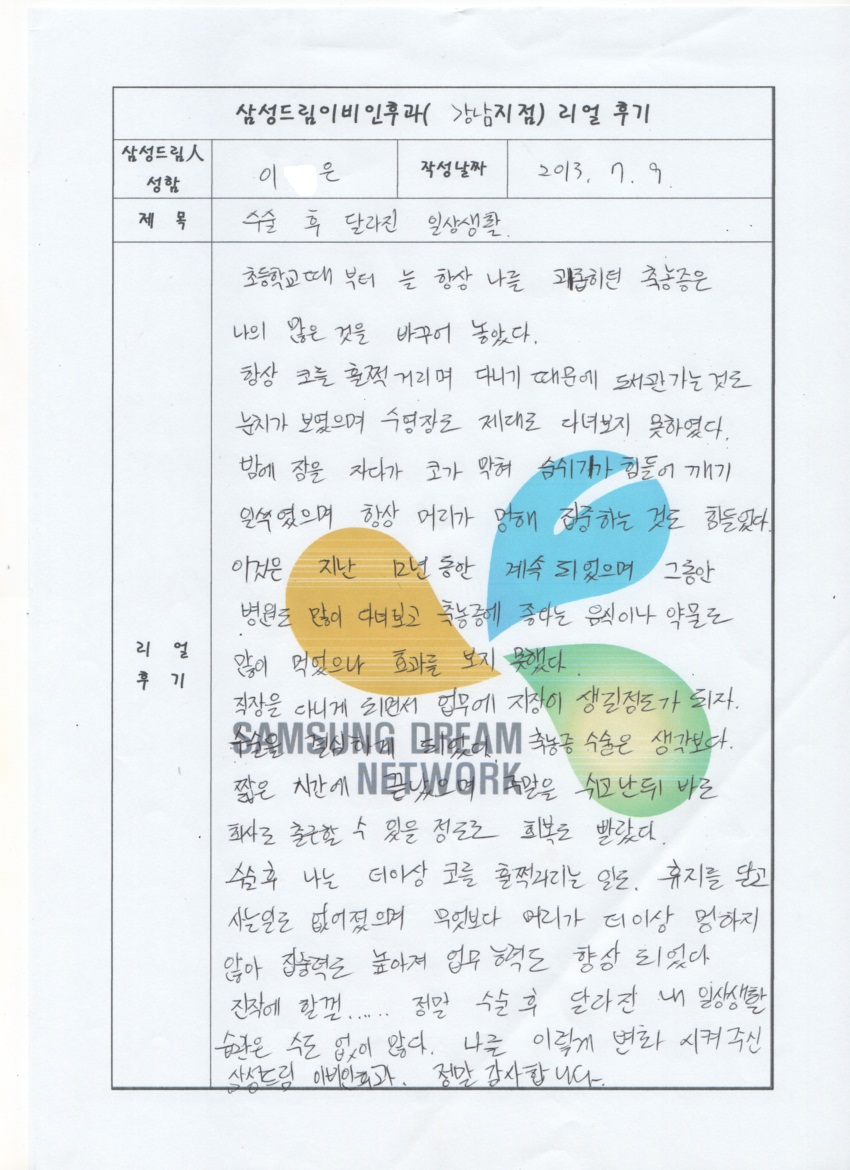 삼성드림이비인후과( 강남지점) 리얼 후기
삼성드림人 성함
이 은
작성날짜
2013. 7. 9.
제 목
수술 후 달라진 일상생활.
리 얼 후 기
초등학교때 부터 늘 항상 나를 괴롭히던 축농증은
나의 많은 것을 바꾸어 놓았다.
항상 코를 훌쩍 거리며 다니기 때문에 도서관가는것도
눈치가 보였으며 수영장도 제대로 다녀보지 못하였다.
밤에 잠을 자다가 코가 막혀 숨쉬기가 힘들어 깨기
일쑤 였으며 항상 머리가 멍해 집중하는 것도 힘들었다.
이것은 지난 12년 동안 계속 되었으며 그동안
병원도 많이 다녀보고 축농증에 좋다는 음식이나 약물도
많이 먹었으나 효과를 보지 못했다.
직장을 다니게 되면서 업무에 지장이 생길정도가 되자.
수술을 결심하게 되었다. 축농증 수술은 생각보다.
짧은 시간에 끝났으며 주말을 쉬고난뒤 바로
회사로 출근할 수 있을 정도로 회복도 빨랐다.
수술후 나는 더이상 코를 훌쩍거리는 일도. 휴지를 달고
사는일도 없어졌으며 무엇보다 머리가 더이상 멍하지
않아 집중력도 높아져 업무 능력도 향상 되었다
진작에 할껄...... 정말 수술 후 달라진 내 일상생활
습관은 수도 없이 많다. 나를 이렇게 변화 시켜 주신
삼성드림 이비인후과. 정말 감사합니다.
SAMSUNG DREAM
NETWORK